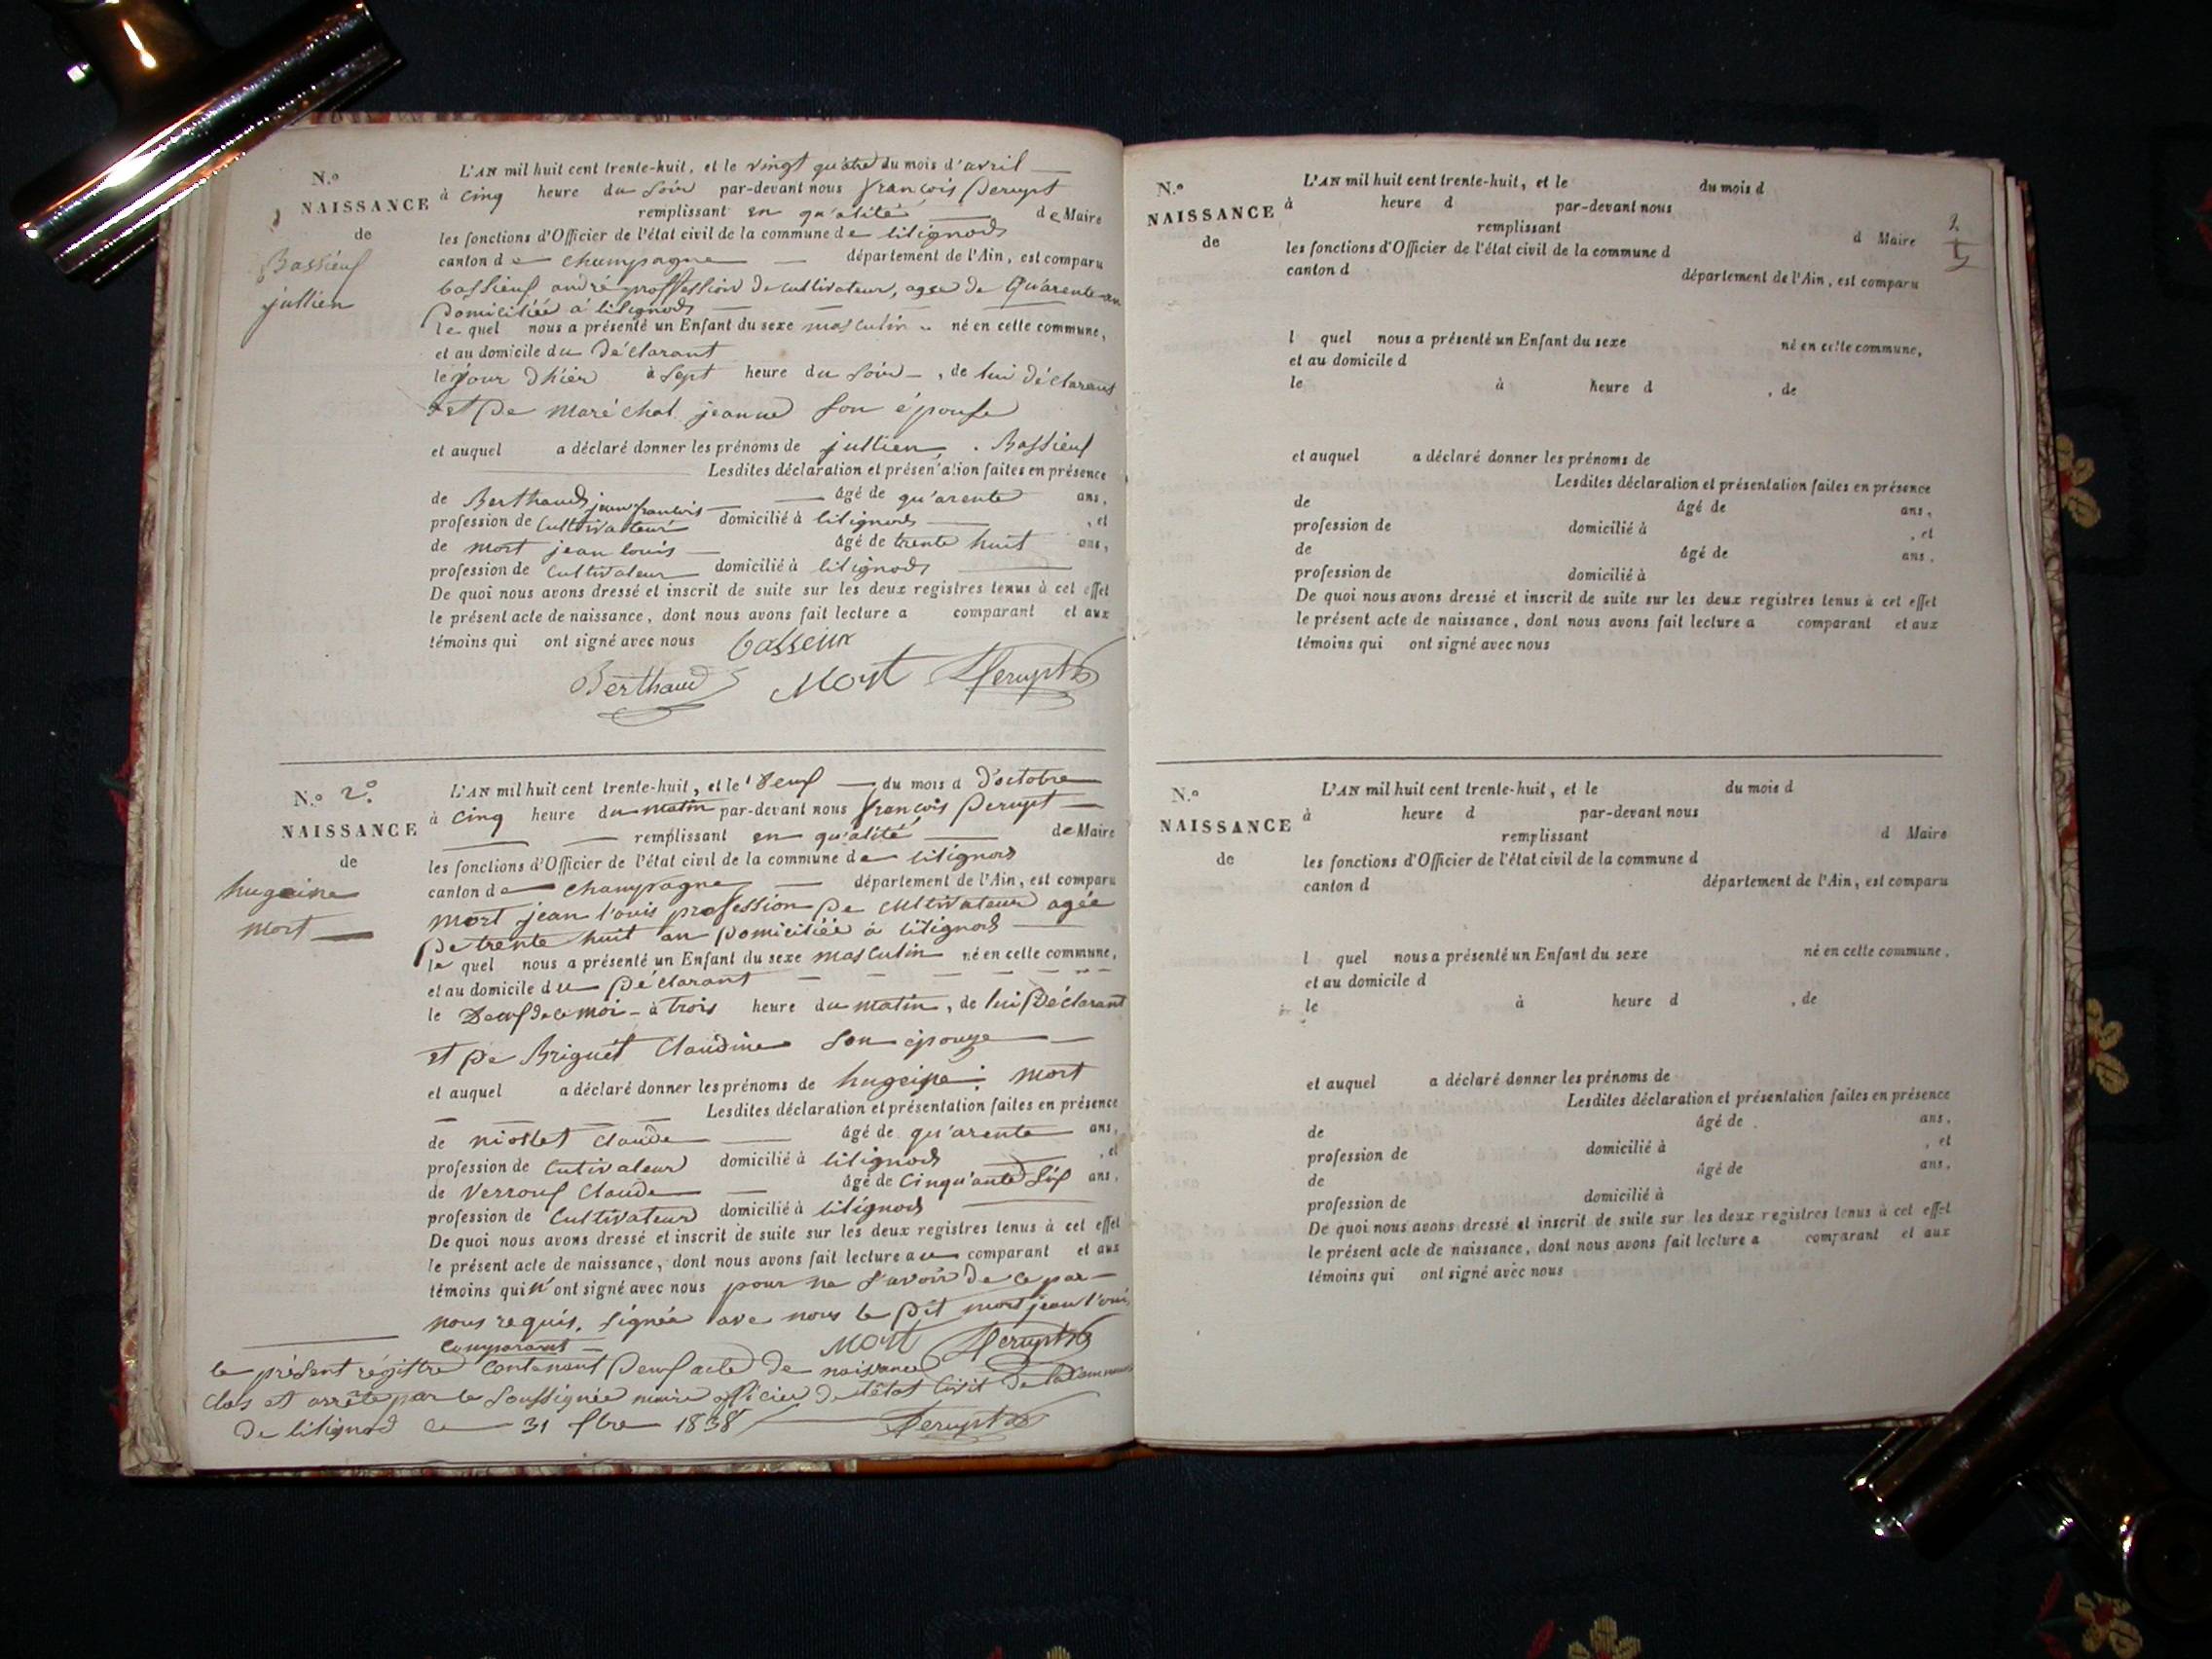 N.o
NAISSANCE
de
Bassieuf
jullien
L'AN mil huit cent trente-huit, et le vingt quatre du mois d'avril
à cinq heure du soir par-devant nous françois Perupt
remplissant en qu'alité de Maire
les fonctions d'Officier de l'état civil de la commune de litignods
canton de champagne département de l'Ain, est comparu
bassieuf andré proffession de cultivateur, agee de Qu'arente an
Domiciliée a litignods
le quel nous a présenté un Enfant du sexe masculin né en cette commune,
et au domicile du Déclarant
le jour d'hier à sept heure du soir, de lui déclarant
et de maréchal jeanne son épouse
et auquel a déclaré donner les prénoms de jullien. Bassieuf
Lesdites déclaration et présentation faites en présence
de Berthaud jean francois âgé de qu'arente ans,
profession de Cultivateur domicilié à litignods, et
de mort jean louis âgé de trente huit ans,
profession de Cultivateur domicilié à litignods
De quoi nous avons dressé et inscrit de suite sur les deux registres tenus à cet effet
le présent acte de naissance, dont nous avons fait lecture a comparant et aux
témoins qui ont signé avec nous basseiux
Berthaud Mort Perupt
N.o 2o
NAISSANCE
de
hugeine
mort
L'AN mil huit cent trente-huit, et le Deuf du mois d D'octobre
à cinq heure du matin par-devant nous françois Perupt
remplissant en qu'alité de Maire
les fonctions d'Officier de l'état civil de la commune de litignods
canton de champagne département de l'Ain, est comparu
mort jean l'ouis profession de cultivateur agée
De trente huit an Domiciliée à litignods
le quel nous a présenté un Enfant du sexe masculin né en cette commune,
et au domicile du Déclarant
le Deuf de ce moi à trois heure du matin, de lui Déclarant
et de Briguet Claudine son épouze
et auquel a déclaré donner les prénoms de hugeine: mort
Lesdites déclaration et présentation faites en présence
de niollet Claude âgé de qu'arente ans,
profession de Cutivateur domicilié à litignods, et
de Verrouf Claude âgé de Cinqu'ante Sif ans,
profession de Cultivateur domicilié à litignods
De quoi nous avons dressé et inscrit de suite sur les deux registres tenus à cet effet
le présent acte de naissance, dont nous avons fait lecture au comparant et aux
témoins qui n'ont signé avec nous pour ne s'avoir de ce par
nous requis, signée ave nous le Dit mort jean l'oui
comparant Mort Perupt
le présent régistre contenant Deuf acte de naissance
clos et arrêté par le Soussignée maire officier de l'état Civil de la Commune
De litignod ce 31 1838 Perupt
2
5
N.o
NAISSANCE
de
L'AN mil huit cent trente-huit, et le du mois d
à heure d par-devant nous
remplissant d Maire
les fonctions d'Officier de l'état civil de la commune d
canton d département de l'Ain, est comparu
l quel nous a présenté un Enfant du sexe né en cette commune,
et au domicile d
le à heure d, de
et auquel a déclaré donner les prénoms de
Lesdites déclaration et présentation faites en présence
de âgé de ans,
profession de domicilié à, et
de âgé de ans,
profession de domicilié à
De quoi nous avons dressé et inscrit de suite sur les deux registres tenus à cet effet
le présent acte de naissance, dont nous avons fait lecture a comparant et aux
témoins qui ont signé avec nous
N.o
NAISSANCE
de
L'AN mil huit cent trente-huit, et le du mois d
à heure d par-devant nous
remplissant d Maire
les fonctions d'Officier de l'état civil de la commune d
canton d département de l'Ain, est comparu
l quel nous a présenté un Enfant du sexe né en cette commune,
et au domicile d
le à heure d, de
et auquel a déclaré donner les prénoms de
Lesdites déclaration et présentation faites en présence
de âgé de ans,
profession de domicilié à, et
de âgé de ans,
profession de domicilié à
De quoi nous avons dressé et inscrit de suite sur les deux registres tenus à cet effet
le présent acte de naissance, dont nous avons fait lecture a comparant et aux
témoins qui ont signé avec nous